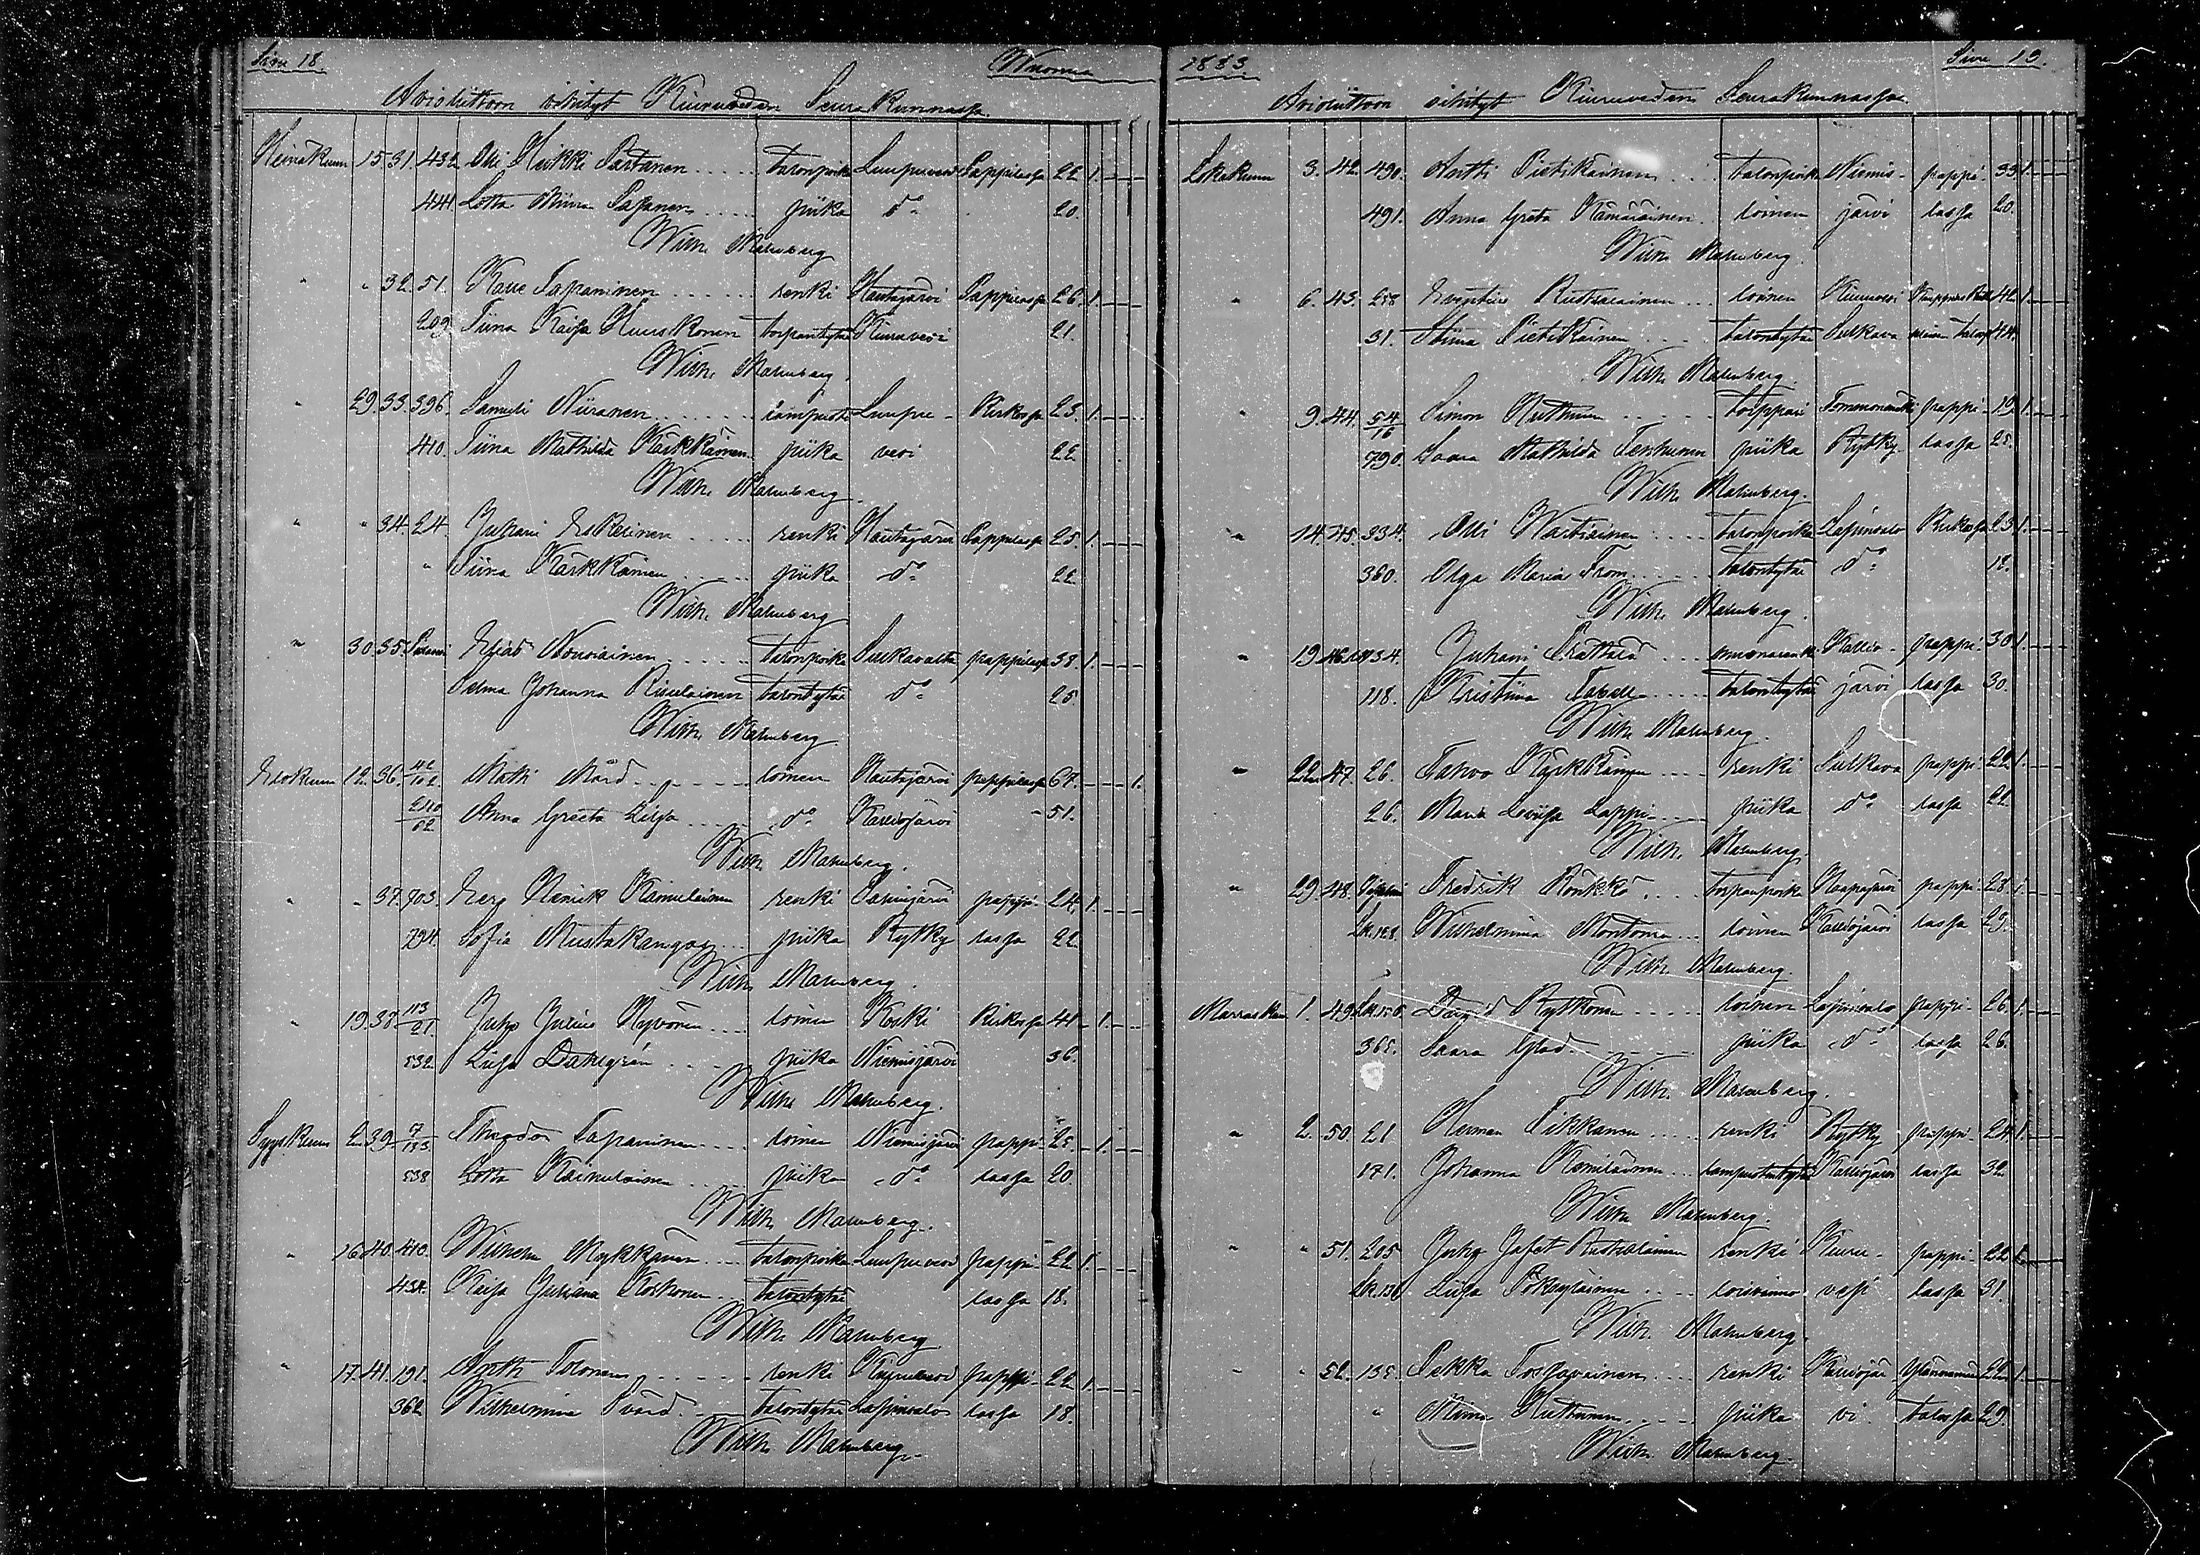 Sivu 18. Wuonna
Avioliittoon vihityt Kiuruveden Seurakunnassa.
Heinäkuun 15. 31. 432. Olli Heikki Partanen talonpoika Luupuvesi Pappilassa 22. 1.
444. Lotta Miina Sapanen piika do 20.
Wilh. Malmberg
" " 32. 51. Kalle Tapaninen renki Hautajärvi Pappilassa 26. 1.
209 Tiina Kaisa Huuskonen torpantytär Kiuruvesi 21.
Wilh. Malmberg.
" 29. 33. 396. Samuli Niiranen Luupu- Kirkossa 23. 1.
410. Tiina Mathilda Kärkkäinen piika vesi 22.
Wilh. Malmberg.
" " 34. 24. Juhani Eskelinen renki Hautajärvi Pappilassa 25. 1.
" Tiina Kärkkäinen piika do 22.
Wilh. Malmberg
" 30. 35. Elias Nousiainen talonpoika Sulkavalta pappilassa 38. 1.
Selma Johanna talontytär do 25.
Wilh. Malmberg.
Elokuun 12. 36. Matti Mård loinen Hautajärvi pappilassa 67. 1.
210/62 Anna Greeta Lilja do Kalliojärvi 51.
Wilh. Malmberg.
" " 37. 703. Henrik renki pappi- 24. 1.
794. Sofia Mustakangas piika Rytky lassa 22.
Wilh. Malmberg.
" 19. 38. 113/21. Juho Julius Ryhönen loinen Koski Kirkossa 41. 1.
532. Liisa Dahlgrén piika Niemisjärvi 36.
Wilh. Malmberg.
Syyskuun 2. 39. 7/153 Theodor Tapaninen loinen Niemisjärvi pappi- 25. 1.
538 Lotta piika do lassa 20.
Wilh. Malmberg.
" 16. 40. 410. Wilhelm Mykkänen talonpoika Luupuvesi pappi- 22. 1.
434. Kaisa Juliana talontytär lassa 18.
Wilh. Malmberg
" 17. 41. 191. Antti Tolonen renki Kiuruvesi pappi- 22. 1.
362 Wilhelmina Svärd talontytär Lapinsalo lassa 18.
Wilh. Malmberg.
1883 Sivu 19.
Avioliittoon vihityt Kiuruveden Seurakunnassa.
Lokakuun 3. 42. 490. Antti Pietikäinen talonpoika Niemis- pappi- 33. 1.
491. Anna Greta Kämäräinen loinen järvi lassa 20.
Wilh. Malmberg.
" 6. 43. 258 loinen Kiuruvesi 42. 1.
31. Stiina Pietikäinen talontytär Sulkava 44.
Wilh. Malmberg.
" 9. 44. 54/16 Simon Huttunen torppari pappi- 19. 1.
790. Saara Mathilda Tenhunen piika Rytky lassa 25.
Wilh. Malmberg.
" 14. 45. 334. Olli Wartiainen talonpoika Lapinsalo Kirkossa 23. 1.
360. Olga Maria From talontytär do 18.
Wilh. Malmberg.
" 19. 46. Juhani Kallio- pappi- 30. 1.
118. Kristiina Tabell talontytär järvi lassa 30.
Wilh. Malmberg.
" 22. 47. 26. Tahvo Kärkkäinen renki Sulkava pappi- 22. 1.
26. Maria Loviisa Lappi piika do lassa 22.
Wilh. Malmberg.
" 29. 48. Fredrik Rönkkö torpanpoika Haapajärvi pappi- 28. 1.
Lk. 128. Wilhelmina Montonen loinen Kalliojärvi lassa 29.
Wilh. Malmberg.
Marraskuun 1. 49. David Rytkönen loinen Lapinsalo pappi- 26. 1.
365. Saara Glad piika do lassa 26.
Wilh. Malmberg.
" 2. 50. 21 Herman Tikkanen renki Rytky pappi- 24. 1.
171. Johanna Komulainen Kalliojärvi lassa 32.
Wilh. Malmberg.
" " 51. 205 Juho Jafet Ruotsalainen renki Kiuru- pappi- 22. 1.
Liisa Pöksyläinen vesi lassa 31.
Wilh. Malmberg.
" " 52. 135. Pekka Tossavainen renki Kalliojär 22. 1.
" Huttunen piika vi talossa 29.
Wilh. Malmberg.